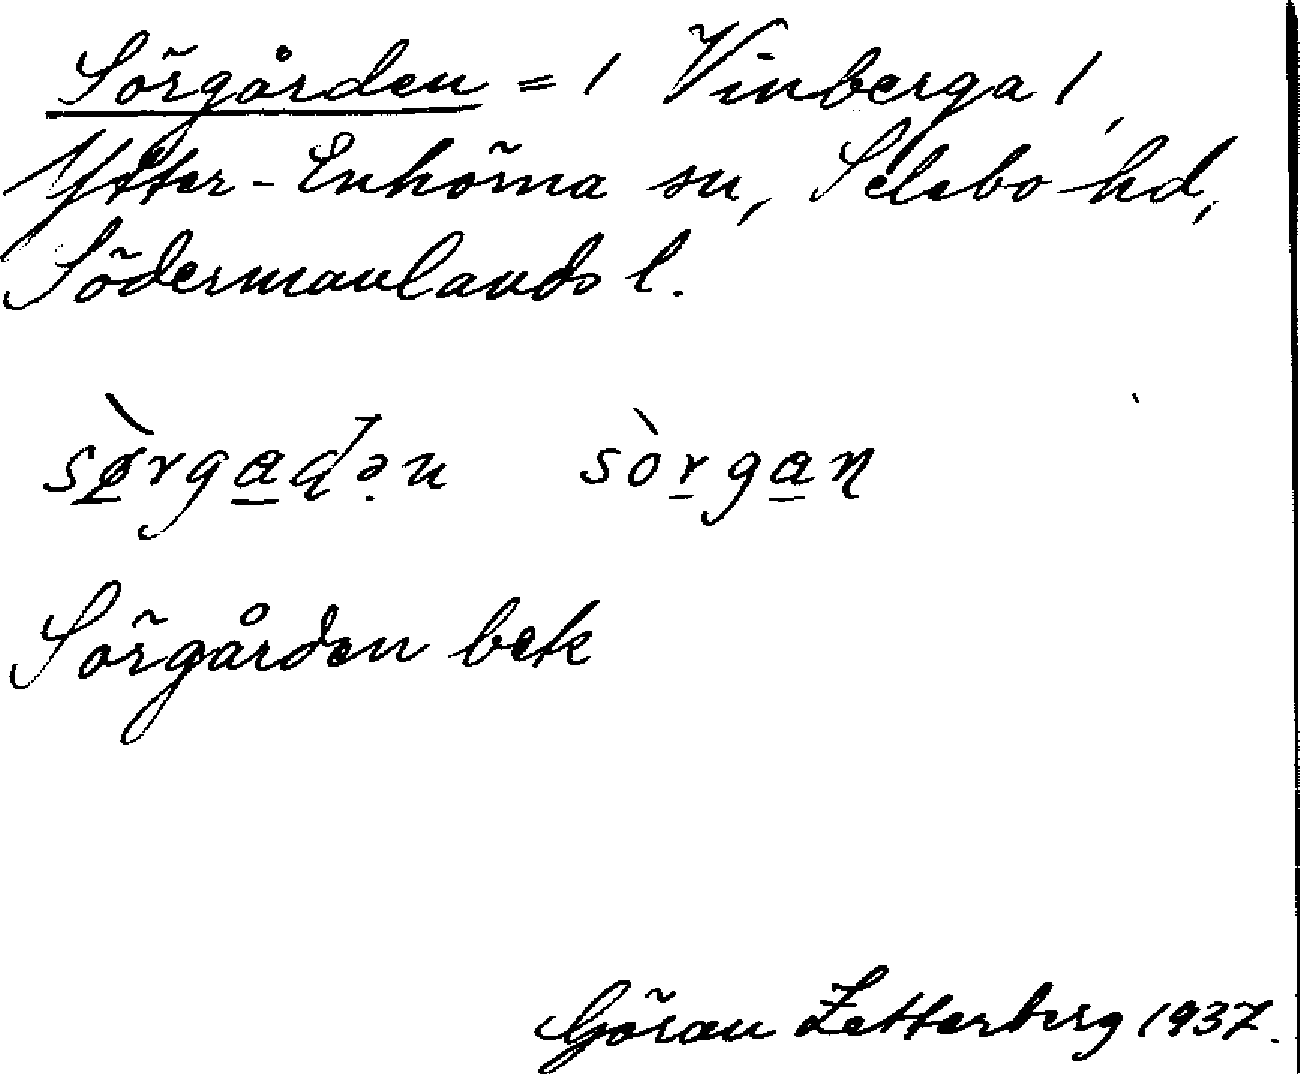 Sörgården = / Vinberga /,
Ytter-Enhörna sn, Selebo hd,
Södermanlands l.
sø̀rgadən sòrgaɳ
Sörgården bek
Göran Zetterberg 1937.